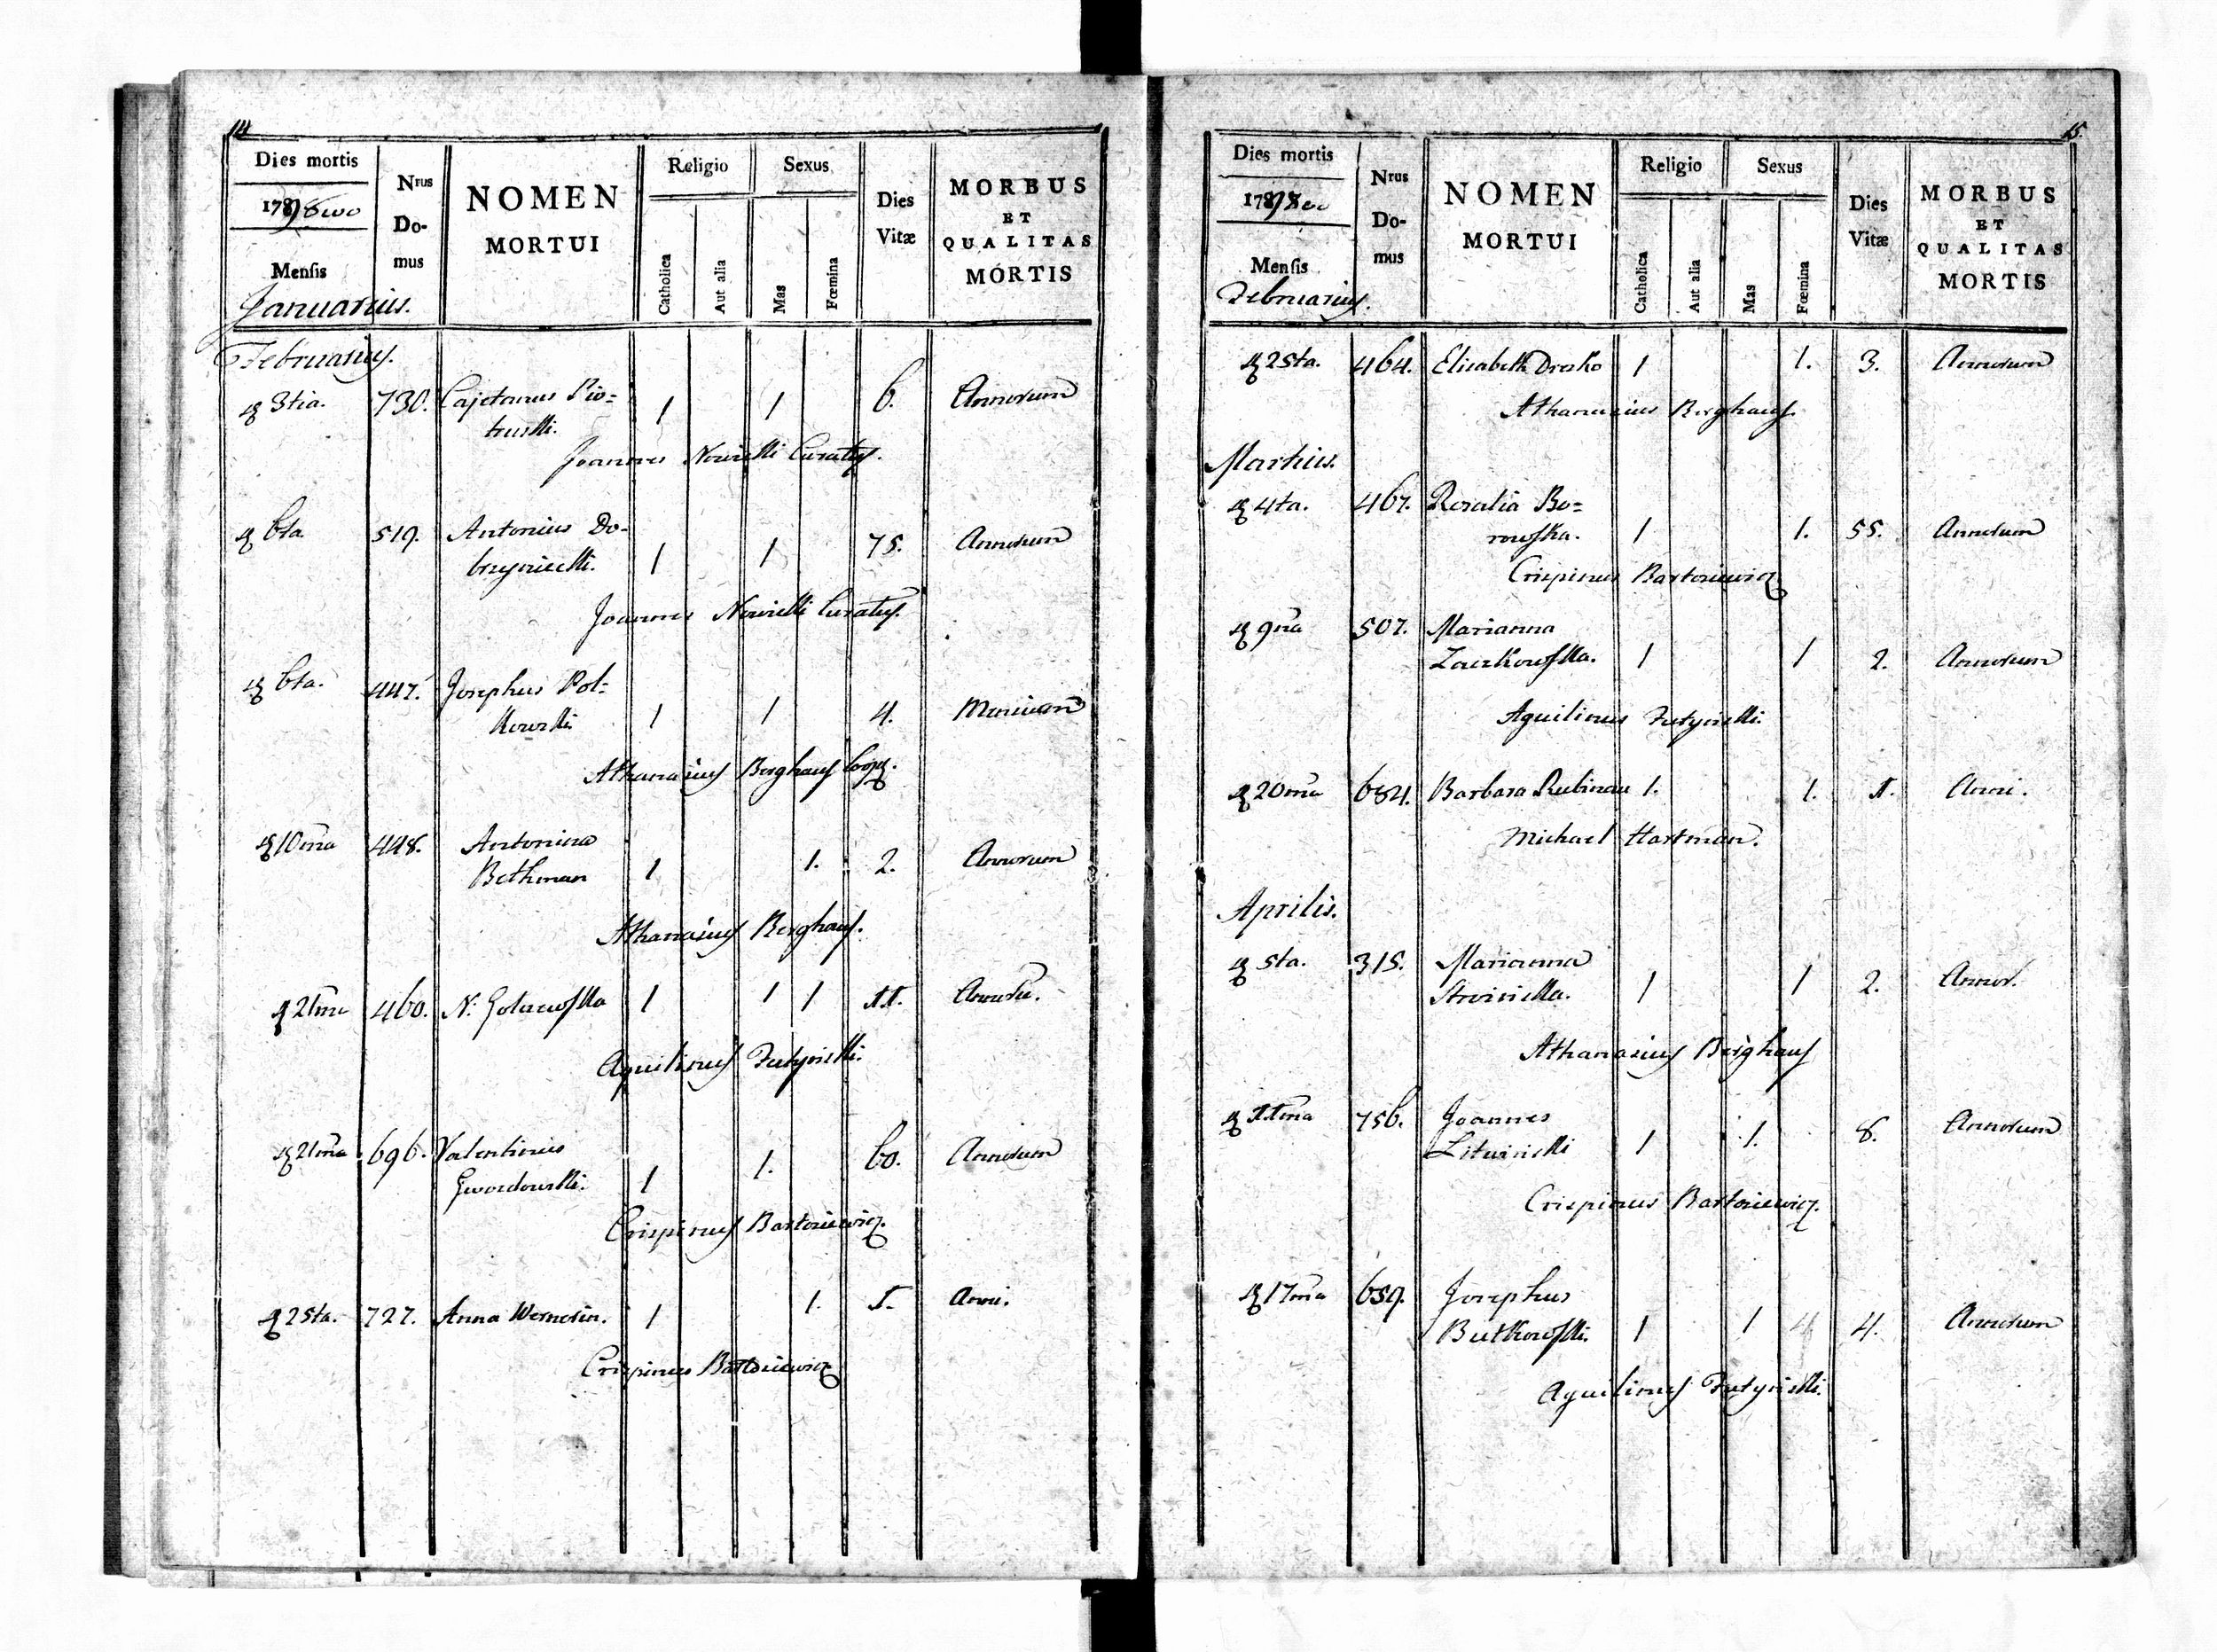 14
Dies mortis
Nrus Domus
NOMEN MORTUI
Religio
Catholica
Aut alia
Sexus
Mas
Fœmina
Dies Vitæ
MORBUS ET QUALITAS MORTIS
1798
Mensis
Januarius.
Februarius.
3tia. 730. Cajetanus Pio= 1 1 6. Annorum
truski.
Joannes Curatus.
6ta 519. Antonius Do- 1 1 75. Annorum
Joannes Curatus.
6ta. 447. Josephus Pol- 1 1 4.
kowski
Athanasius Berghaus
10ma 448. Antonina 1 1. 2. Annorum
Bethman
Athanasius Berghaus.
21ma 460. N. 1 1 1 11.
Aquilinus
21ma 696. Valentinus 1 1. 60. Annorum
Gwozdowski.
Crispinus
25ta. 727. Anna Wernerin. 1 1. 1. Anni.
Crispinus
15.
Dies mortis
Nrus Domus
NOMEN MORTUI
Religio
Catholica
Aut alia
Sexus
Mas
Fœmina
Dies Vitæ
MORBUS ET QUALITAS MORTIS
1798
Mensis
Februarius.
25ta. 464. Elisabeth 1 1. 3. Annorum
Athanasius Berghaus.
Martius.
4ta. 467. Rosalia Bo= 1 1. 55. Annorum
rowska.
Crispinus
9na 507. Marianna 1 1 2. Annorum
Aquilinus
20ma 684. Barbara 1. 1. 1. Anni.
Michael Hartman.
Aprilis.
5ta. 315. Marianna 1 1 2. Annor.
Athanasius Berghaus
11ma 756. Joannes 1 1. 8. Annorum
Litwinski
Crispinus
17ma 659. Josephus 1 1 4 4. Annorum
Butkowski.
Aquilinus